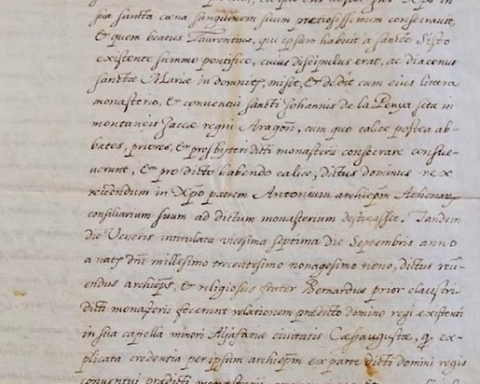 in
sua sancta cœna sanguinem suum pretiosissimum consecravit,
& quem beatus Laurentius, qui ipsum habuit a sancto Sisto
existente summo pontifice, cuius discipulus erat, ac diaconus
sanctæ Mariæ in domnicis, misit, & dedit cum eius littera
monasterio, & conventui sancti Johannis de la Penya sita in
montaneis Jaccæ regni Aragon, cum quo calice postea ab-
bates, priores, & presbyteri dicti monasterii consecrare consue-
verunt, & pro dicto habendo calice, dictus dominus rex
revendum in Xpo patrem Antonium archiepm Athenar
consiliarium suum ad dictum monasterium destinasset. Tandem
die Veneris intitulata vicesima septima die Septembris anno
a natte dni millesimo trecentesimo nonagesimo nono, dictus rev-
endus archieps, & religiosus frater Bernardus prior claustri
dicti monasterii fecerunt relationem prædicto domino regi existenti
in sua capella minori Aljafariæ civitatis Cæsaraugustæ, q ex-
plicata credentia per ipsum archiepm ex parte dicti domini regis
conventui prædicti monasterii